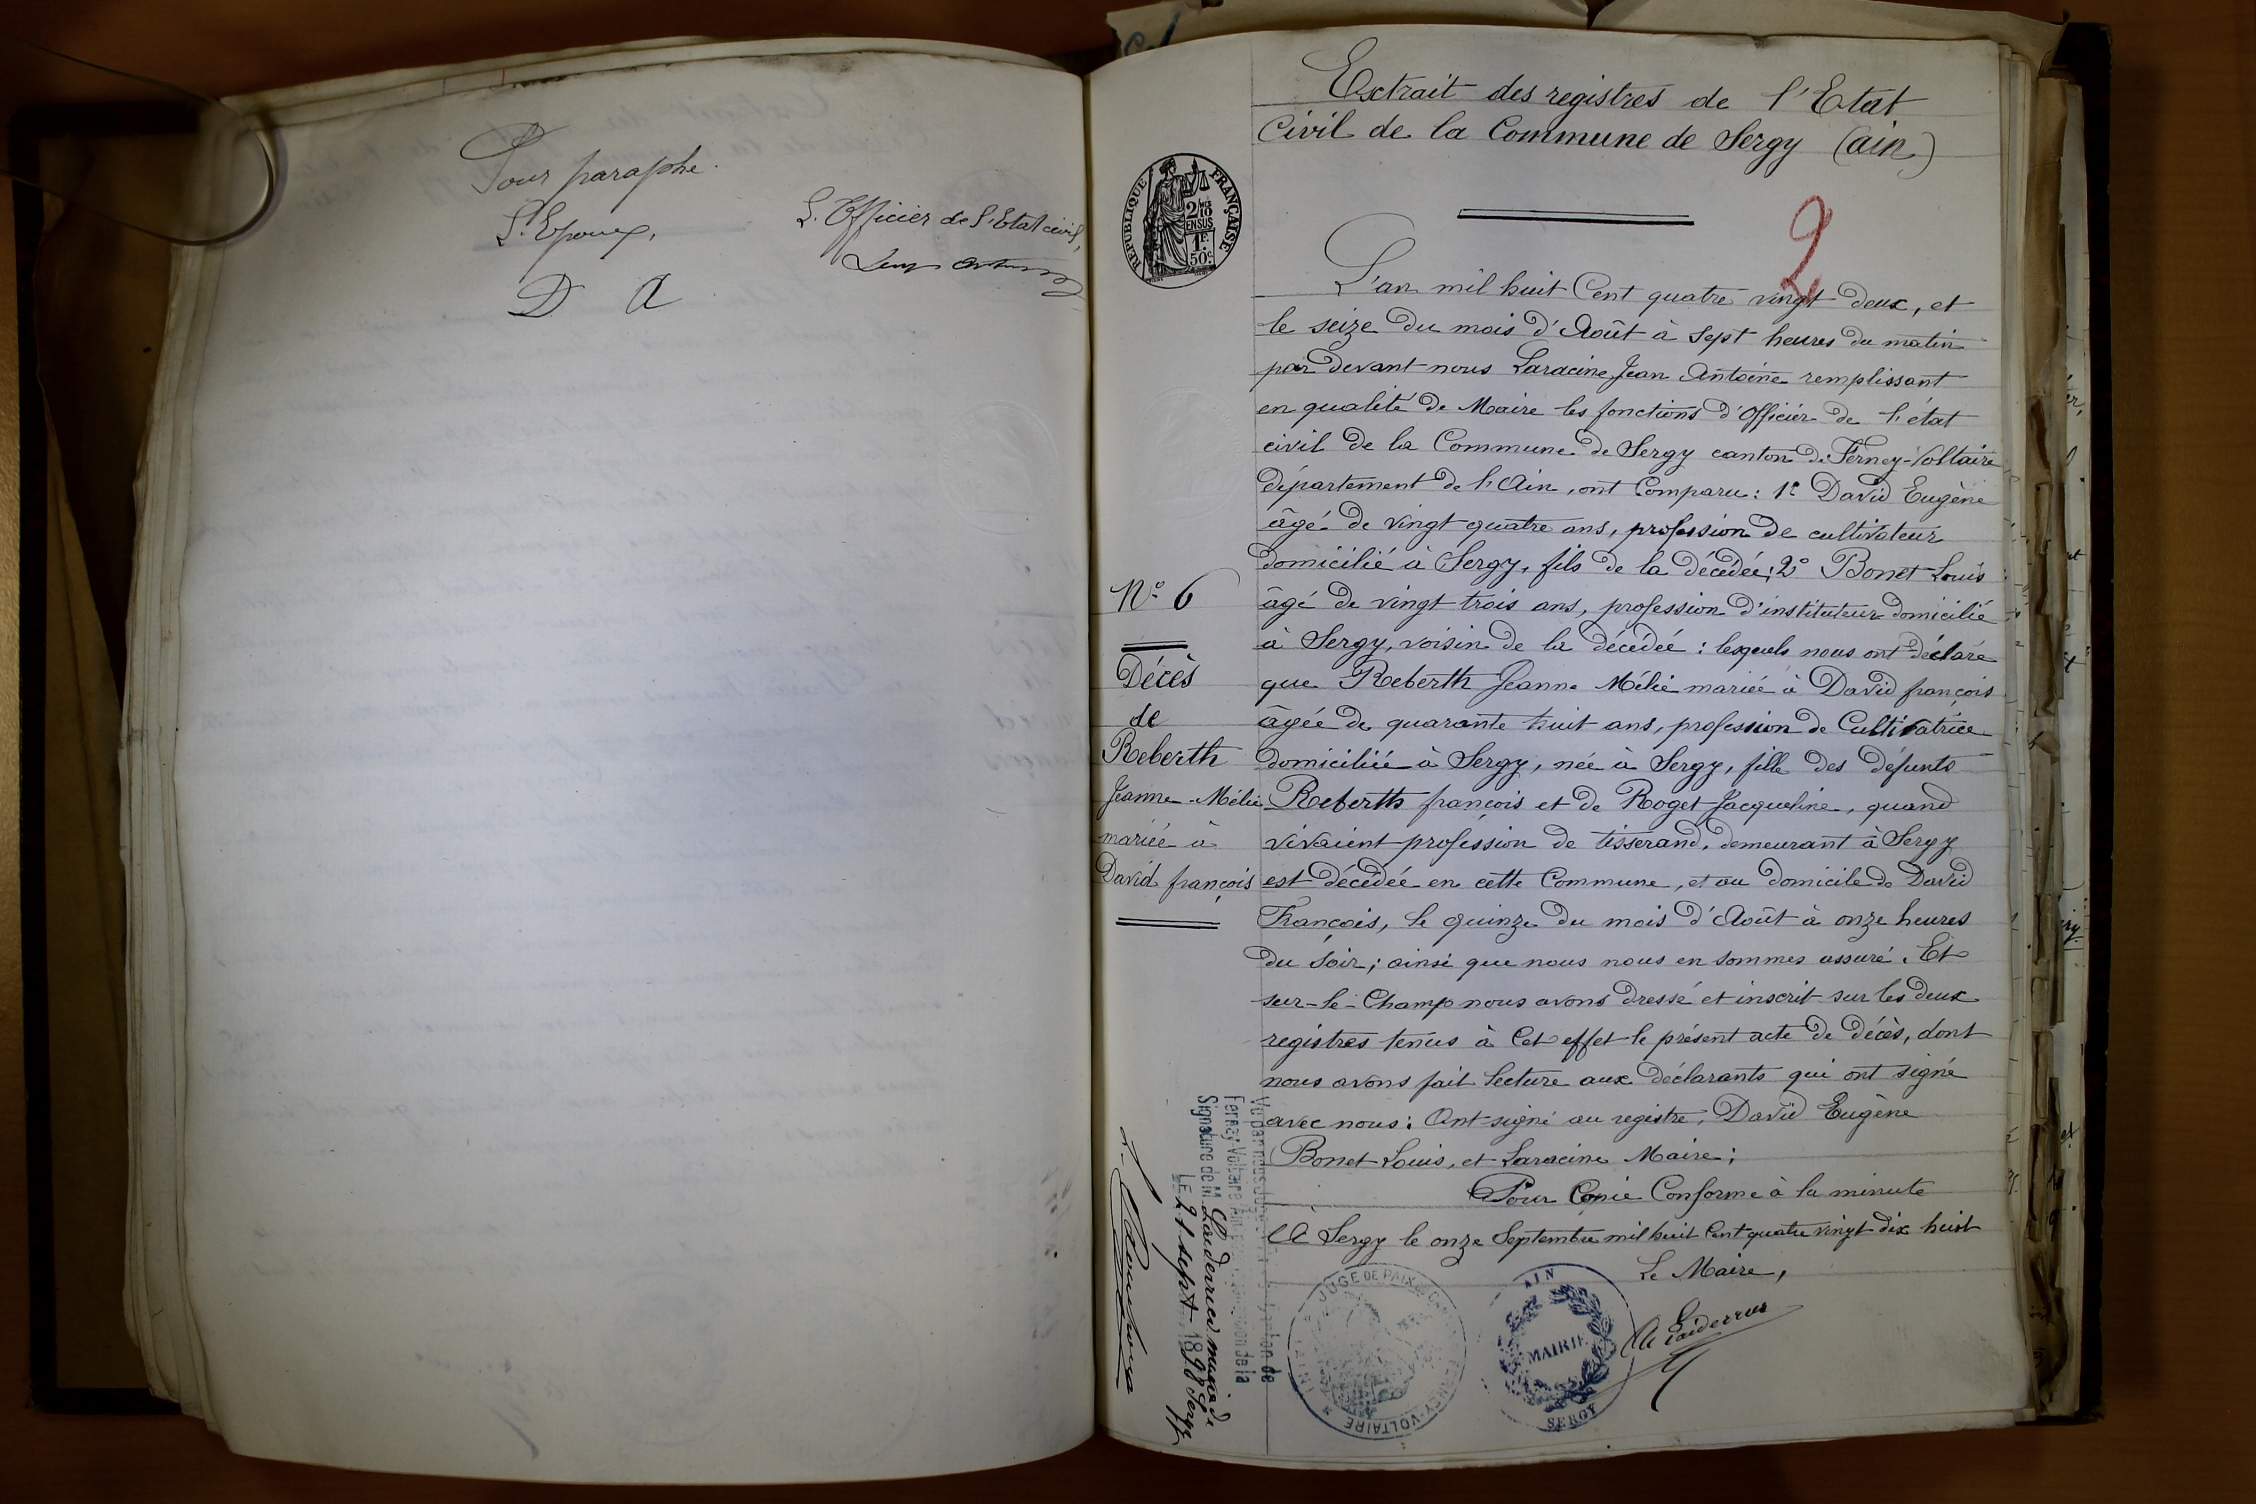 Pour paraphe.
L'Epoux,
L'Officier de l'Etat civil,
D A
Extrait des registres de l'Etat
Civil de la Commune de Sergy (ain)
2
REPUBLIQUE FRANÇAISE
2/10
EN SUS
1F.
50c.
L'an mil huit Cent quatre vingt deux, et
le seize du mois d'Août à sept heures du matin
par devant nous Laracine Jean Antoine remplissant
en qualité de Maire les fonctions d'Officier de l'état
civil de la Commune de Sergy canton de Ferney-Voltaire
département de l'Ain, ont Comparu : 1° David Eugène
âgé de vingt quatre ans, profession de cultivateur
domicilié à Sergy, fils de la décédée; 2° Bonet Louis
âgé de vingt trois ans, profession d'instituteur domicilié
à Sergy, voisin de la décédée : lesquels nous ont déclaré
que Reberth Jeanne Mélie mariée à David françois
âgée de quarante huit ans, profession de Cultivatrice
domiciliée à Sergy, née à Sergy, fille des défunts
Reberth françois et de Roget Jacqueline, quand
vivaient profession de tisserand, demeurant à Sergy
est décédée en cette Commune, et au domicile de David
François, le quinze du mois d'Août à onze heures
du soir; ainsi que nous nous en sommes assuré. Et
sur-le-Champ nous avons dressé et inscrit sur les deux
registres tenus à Cet effet le présent acte de décès, dont
nous avons fait lecture aux déclarants qui ont signé
avec nous : Ont signé au registre, David Eugène
Bonet Louis, et Laracine Maire;
Pour Copie Conforme à la minute
A Sergy le onze Septembre mil huit Cent quatre vingt dix huit
Le Maire,
N° 6
Décès
de
Reberth
Jeanne-Mélie
mariée à
David françois
Ferney-Voltaire
Signature de M. Laiderrier maire de Sergy
LE 21 sept 1898
JUGE DE PAIX
FERNEY-VOLTAIRE
(AIN)
AIN
MAIRIE
SERGY